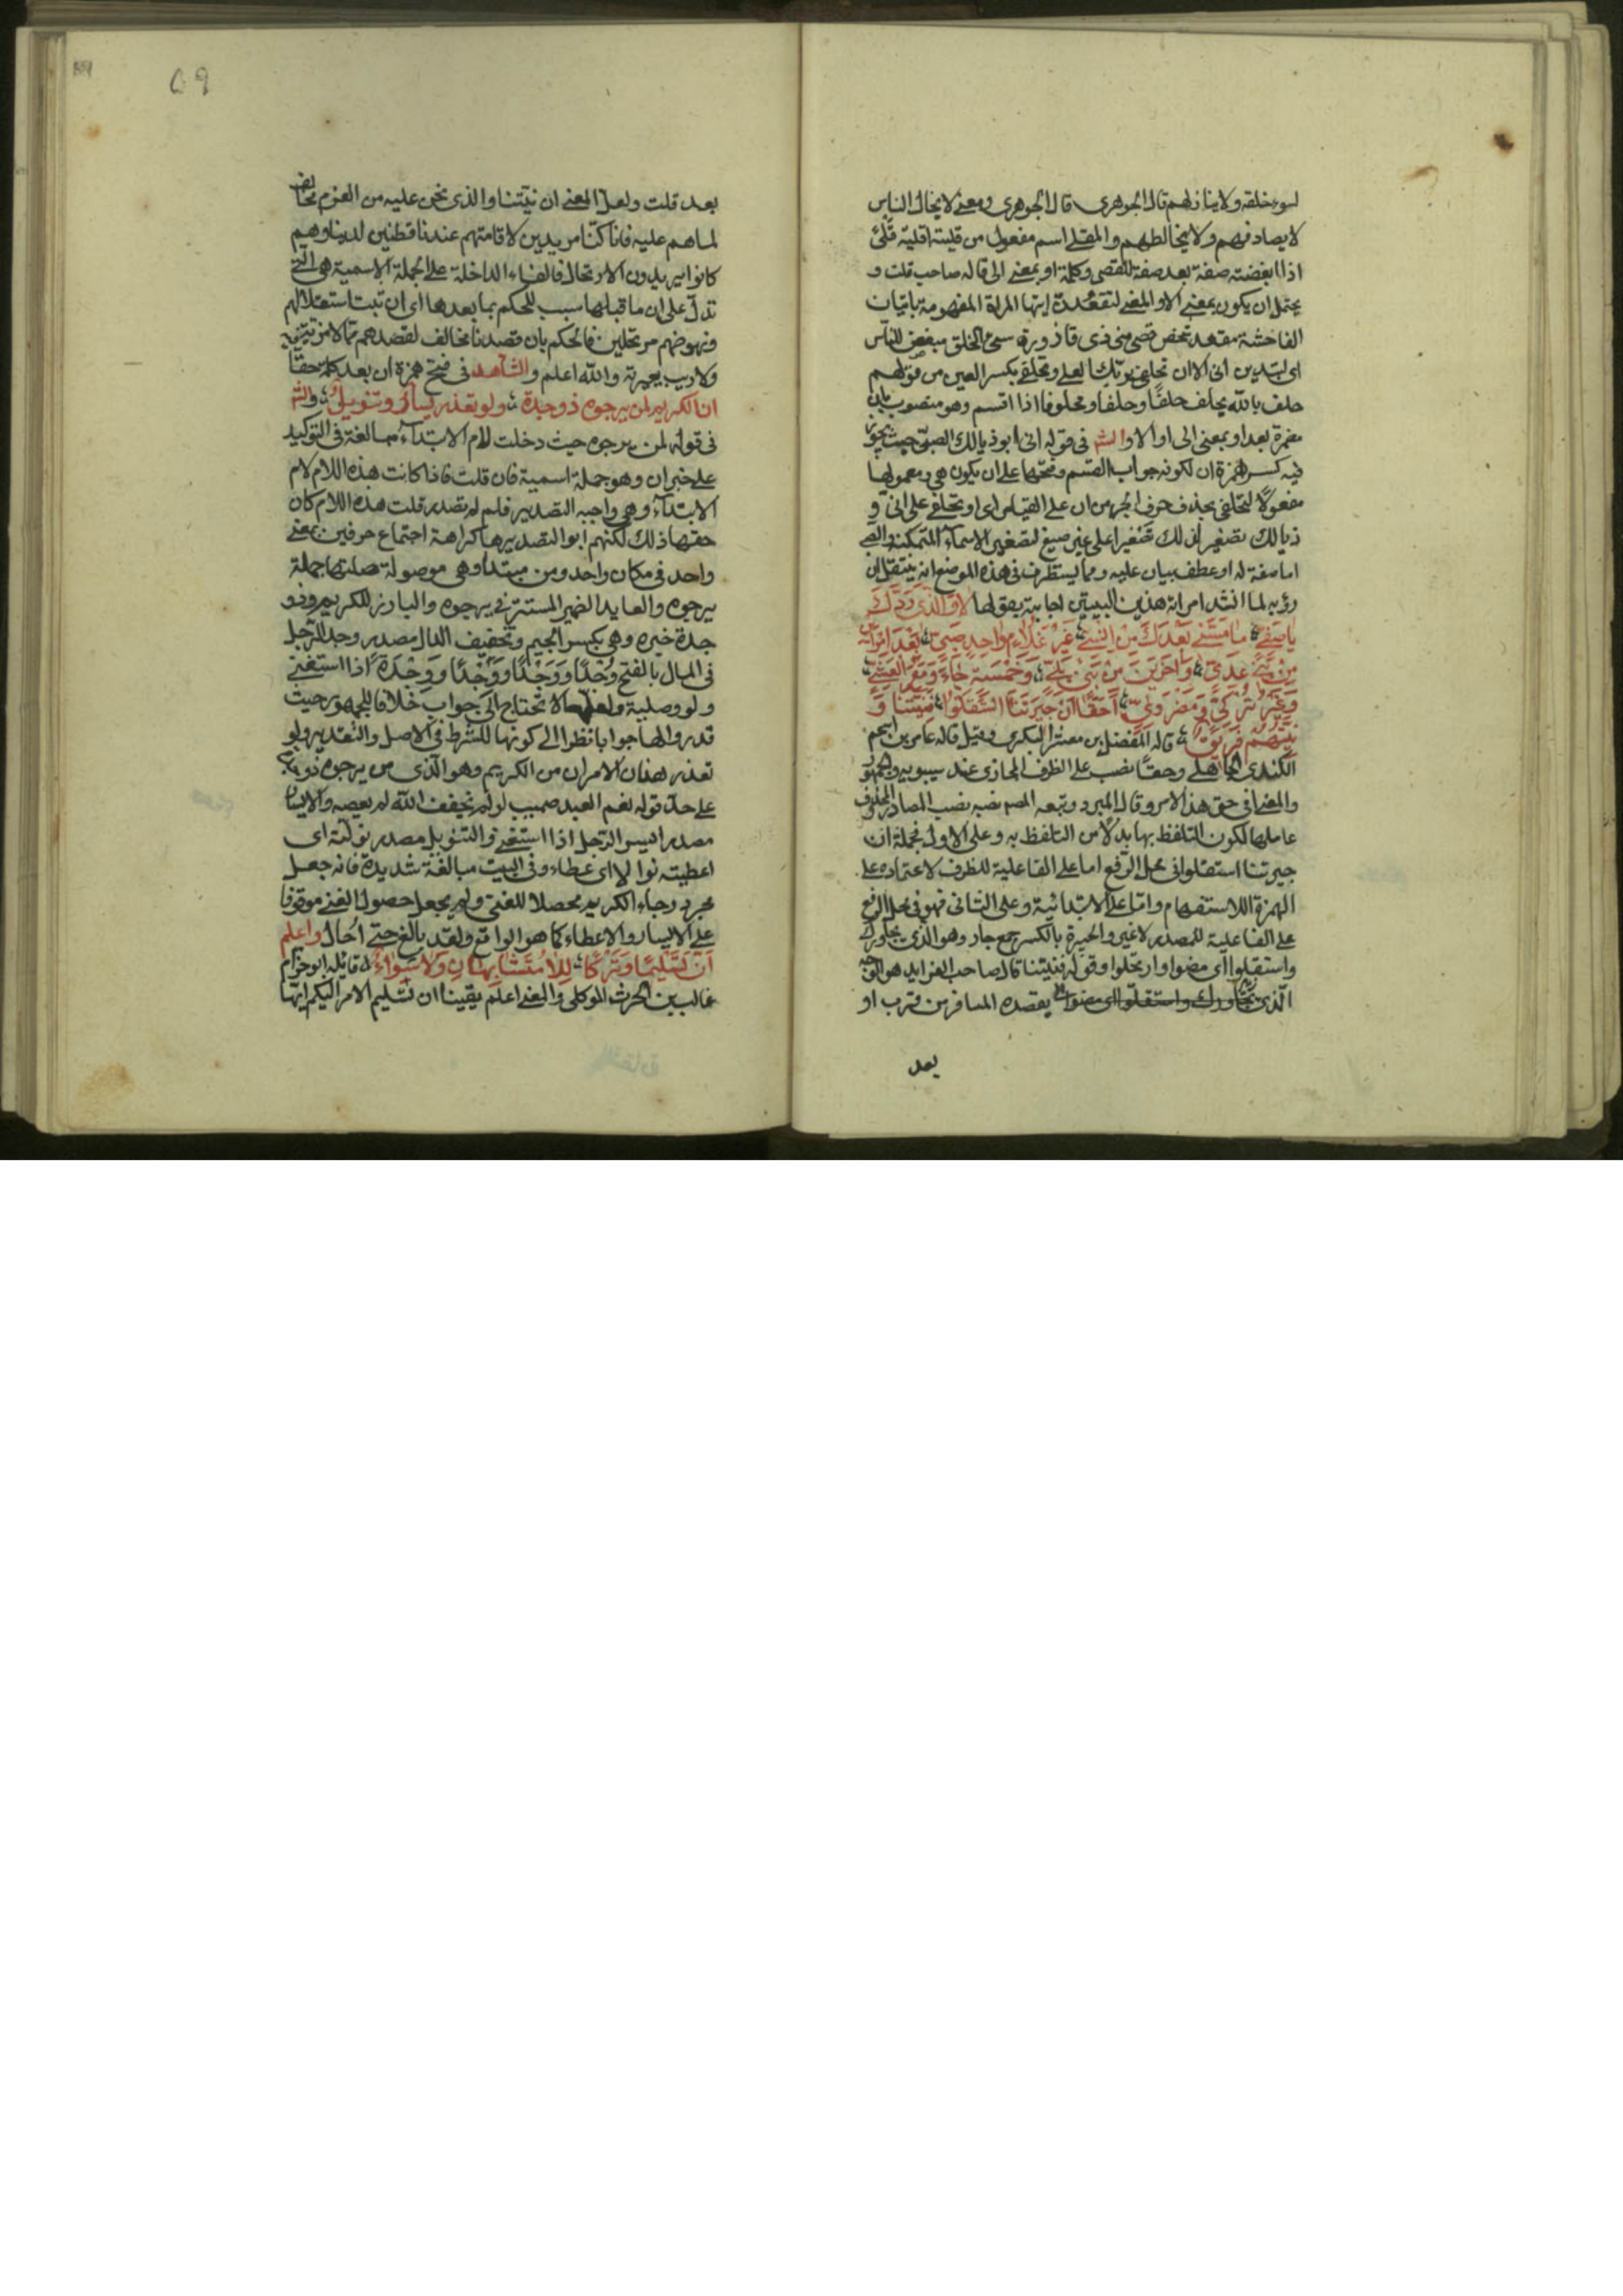 لسوء خلقه ولا ينازلهم قال الجوهري قال الجوهري ومعنى لا يخال الناس
لا يصادفهم ولا يخالطهم والمقلي اسم مفعول من قليته اقليه قلى
اذا ابغضته صفة بعد صفة للقصي وكلمة او بمعنى الى قاله صاحب قلت و
يحتمل ان يكون بمعنى الا والمعنى لتقعدن ايتها المراة المفهومة باتيان
الفاحشة مقعد شخص قصي مني ذي قاذورة سيئ الخلق مبغض للناس
اي لتدين اني الا ان تحلفي بربك العلي وتحلفي بكسر العين من قولهم
حلف بالله يحلف حلفا وحلفا ومحلوفا اذا اقسم وهو منصوب بان
مضمرة بعد او بمعنى الى او الا والشم في قوله اني ابو ذيالك الصبي حيث يجوز
فيه كسر همزة ان لكونه جواب القسم وفتحها على ان يكون هي ومعمولها
مفعولا لتحلفي بحذف حرف الجر من ان على القياس اي او تحلفي على اني و
ذيالك تصغير لذلك تصغيرا على غير صيغ لتصغير الاسماء المتمكنة والصبي
اما صفة له او عطف بيان عليه ومما يستظرف في هذه الموضع انه ينتقل ان
رؤبه لما انشد امراته هذين البيتين اجابته بقولها لا والذي ردك
يا صفي ما مسني بعدك من انسي غير غلام واحد صبي بعد امراين
من بني عدي واخرين من بني بلي وخمسة جاءو مع العشي
وغير تركي ومضروي احقا ان جيرتنا استقلوا فنيتنا و
نيتهم فريق قاله المفضل بن معشر البكري وقيل قاله عامر بن اسحم
الكندي الجاهلي وحقا نصب على الظرف المجازي عند سيبويه والجمهور
والمعنى افي حق هذا الامر وقال المبرد وتبعه المصم نصبه نصب المصادر المحذوف
عاملها لكون التلفظ بها بدلا من التلفظ به وعلى الاول فجملة ان
جيرتنا استقلوا في محل الرفع اما على الفاعلية للظرف لاعتماده على
الهمزة اللاستفهام واما على الابتدائية وعلى الثاني فهو في محل الرفع
على الفاعلية للمصدر لا غير والجيرة بالكسر جمع جار وهو الذي يجاورك
واستقلوا اي مضوا وارتحلوا وقوله فنيتنا قال صاحب الفرايد هو الوجه
الذي يجاورك واستقلوا اي مضوا يقصده المسافر من قرب او
بعد
٥٩
بعد قلت ولعل المعنى ان نيتنا والذي نحن عليه من العزم مخالف
لما هم عليه فانا كنا مريدين لاقامتهم عندنا قطنين لدينا وهم
كانوا يريدون الارتحال فالفاء الداخلة على الجملة الاسمية هي التي
تدل على ان ما قبلها سبب للحكم بما بعدها اي ان ثبت استقلالهم
ونهوضهم مرتحلين فالحكم بان قصدنا مخالف لقصدهم مما لا مزية فيه
ولا ريب يعمرته والله اعلم والشاهد في فتح همزة ان بعد كلمة حقا
ان الكريم لمن يرجوه ذو جدة ولو تعذر ايسار وتنويل والشم
في قوله لمن يرجوه حيث دخلت لام الابتداء مبالغة في التوكيد
على خبر ان وهو جملة اسمية فان قلت فاذا كانت هذه اللام لام
الابتداء وهي واجبه التصدير فلم لم تصدر قلت هذه اللام كان
حقها ذلك لكنهم ابوا تصديرها كراهة اجتماع حرفين بمعنى
واحد في مكان واحد ومن مبتدا وهي موصولة صلتها جملة
يرجوه والعايد الضمير المستتر في يرجوه والبارز للكريم وذو
جدة خبره وهي بكسر الجيم وتخفيف الدال مصدر وجد الرجل
في المال بالفتح وُجدا ووَجدا ووِجدا ووجدة اذا استغنى
ولو وصلية ولعلها لا تحتاج الى جواب خلافا للجمهور حيث
قدروا لها جوابا نظرا الى كونها للشرط في الاصل والتقدير ولو
تعذر هذان الامران من الكريم وهو الذي من يرجوه ذو
على حد قوله نعم العبد صهيب لو لم يخف الله لم يعصه والايسار
مصدر ايسر الرجل اذا استغنى والتنويل مصدر نولته اي
اعطيته نوالا اي عطاء وفي البيت مبالغة شديدة فانه جعل
مجرد رجاء الكريم محصلا للغنى ولم يجعل حصول الغنى موقوفا
على الايسار والاعطاء كما هو الواقع ولقد بالغ حتى احال واعلم
ان تسليما وتركا للا متشابهان ولا سواء قائله ابو حزام
غالب بن الحرث الموكلي والمعنى اعلم يقينا ان تسليم الامر اليكم ايها